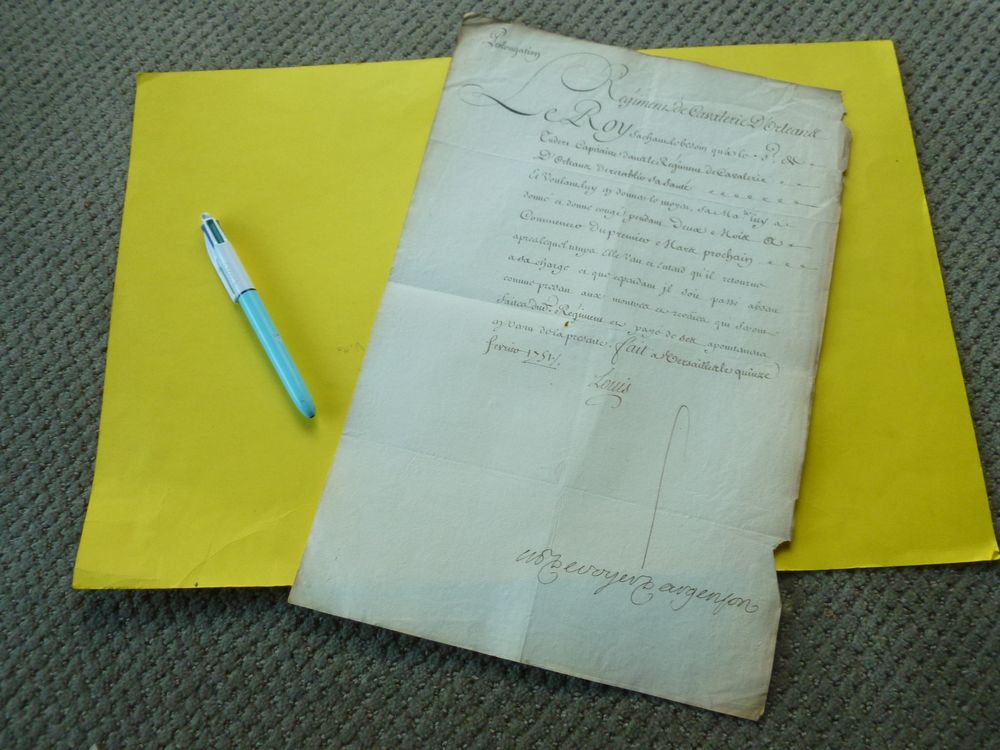 Prolongation
Regiment de Cavalerie D'Orleans
Le Roy sachant le besoin qu'a le S.r de
Capitaine dans le Regiment de Cavalerie
D'Orleans de retablir sa santé
Et Voulant luy en donner le moyen, Sa Ma.té luy a
donné et donne congé pendant deux Mois A
Commencer du premier Mars prochain
apres lequel temps Elle veut et entend qu'il retourne
a sa charge et que cependant il soit passé absent
comme present aux montres et reveües qui seront
faites dud.t Regiment et payé de ses apointemens
en vertu de la presente. fait a Versailles le quinze
fevrier 1751./.
Louis
M P De voyer D argenson